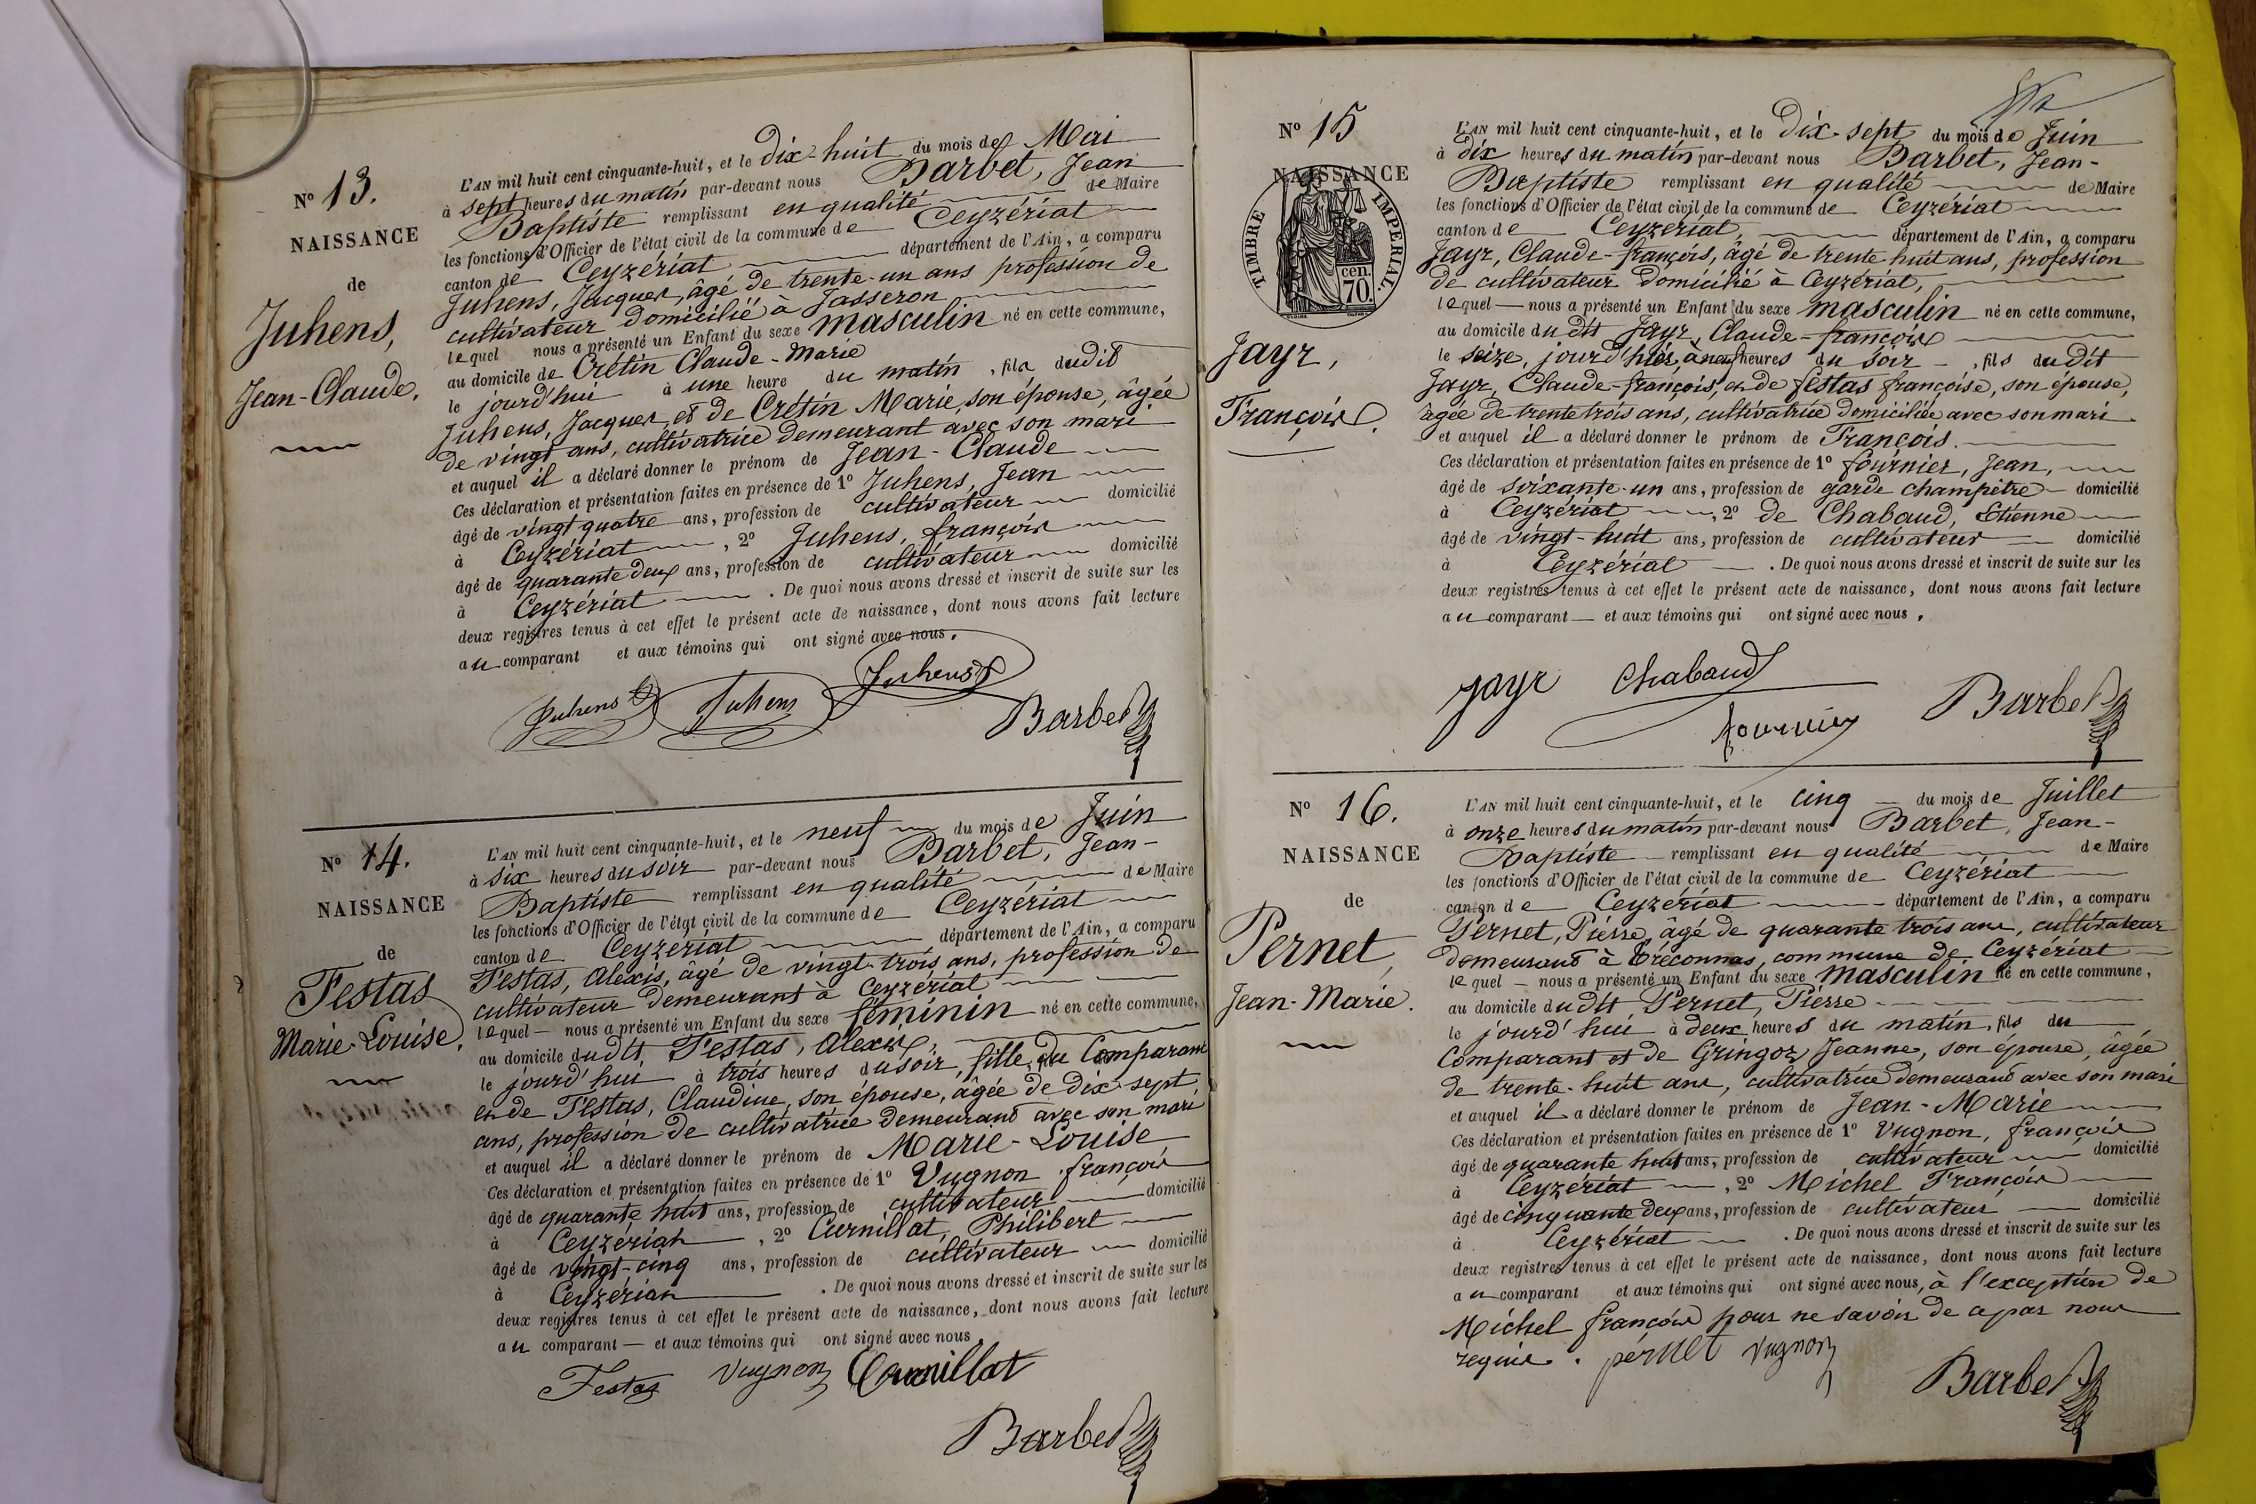 N° 13.
NAISSANCE
de
Juhens,
Jean-Claude.
L'AN mil huit cent cinquante-huit, et le dix-huit du mois de Mai
à sept heures du matin par-devant nous Barbet, Jean
Baptiste remplissant en qualité de Maire
les fonctions d'Officier de l'état civil de la commune de Ceyzériat
canton de Ceyzériat département de l'Ain, a comparu
Juhens, Jacques, âgé de trente-un ans profession de
cultivateur domicilié à Jasseron
lequel nous a présenté un Enfant du sexe masculin né en cette commune,
au domicile de Crétin Claude-Marie
le jourd'hui à une heure du matin, fils dudit
Juhens, Jacques, et de Crétin Marie, son épouse, âgée
de vingt ans, cultivatrice demeurant avec son mari
et auquel il a déclaré donner le prénom de Jean-Claude
Ces déclaration et présentation faites en présence de 1° Juhens, Jean
âgé de vingt quatre ans, profession de cultivateur domicilié
à Ceyzériat, 2° Juhens, françois
âgé de quarante deux ans, profession de cultivateur domicilié
à Ceyzériat. De quoi nous avons dressé et inscrit de suite sur les
deux registres tenus à cet effet le présent acte de naissance, dont nous avons fait lecture
au comparant et aux témoins qui ont signé avec nous.
Juhens Juhens Juhens
Barbet
N° 14.
NAISSANCE
de
Festas
Marie-Louise.
L'AN mil huit cent cinquante-huit, et le neuf du mois de Juin
à six heures du soir par-devant nous Barbet, Jean-
Baptiste remplissant en qualité de Maire
les fonctions d'Officier de l'état civil de la commune de Ceyzériat
canton de Ceyzériat département de l'Ain, a comparu
Festas, Alexis, âgé de vingt-trois ans, profession de
cultivateur demeurant à Ceyzériat
lequel nous a présenté un Enfant du sexe féminin né en cette commune,
au domicile dudit Festas, Alexis,
le jourd'hui à trois heures du soir, fille du Comparant
et de Festas, Claudine, son épouse, âgée de dix-sept
ans, profession de cultivatrice demeurant avec son mari
et auquel il a déclaré donner le prénom de Marie-Louise
Ces déclaration et présentation faites en présence de 1° Vugnon françois
âgé de quarante huit ans, profession de cultivateur domicilié
à Ceyzériat, 2° Curnillat, Philibert
âgé de vingt-cinq ans, profession de cultivateur domicilié
à Ceyzériat. De quoi nous avons dressé et inscrit de suite sur les
deux registres tenus à cet effet le présent acte de naissance, dont nous avons fait lecture
au comparant et aux témoins qui ont signé avec nous.
Festas Vugnon Curnillat
Barbet
N° 15
NAISSANCE
TIMBRE IMPÉRIAL.
cen.
70.
Jayr,
François.
L'AN mil huit cent cinquante-huit, et le dix-sept du mois de Juin
à dix heures du matin par-devant nous Barbet, Jean-
Baptiste remplissant en qualité de Maire
les fonctions d'Officier de l'état civil de la commune de Ceyzériat
canton de Ceyzériat, département de l'Ain, a comparu
Jayr, Claude-françois, âgé de trente-huit ans, profession
de cultivateur domicilié à Ceyzériat,
lequel nous a présenté un Enfant du sexe masculin né en cette commune,
au domicile du dit Jayr, Claude-françois
le seize, jourd'hier, à neuf heures du soir, fils du dit
Jayr, Claude-françois, et de festas françoise, son épouse,
âgée de trente trois ans, cultivatrice domiciliée avec son mari
et auquel il a déclaré donner le prénom de François.
Ces déclaration et présentation faites en présence de 1° fournier, Jean,
âgé de soixante-un ans, profession de garde champêtre domicilié
à Ceyzériat, 2° de Chabaud, Etienne
âgé de vingt-huit ans, profession de cultivateur domicilié
à Ceyzériat. De quoi nous avons dressé et inscrit de suite sur les
deux registres tenus à cet effet le présent acte de naissance, dont nous avons fait lecture
au comparant et aux témoins qui ont signé avec nous.
Jayr Chabaud
fournier Barbet
N° 16.
NAISSANCE
de
Pernet,
Jean-Marie.
L'AN mil huit cent cinquante-huit, et le cinq du mois de Juillet
à onze heures du matin par-devant nous Barbet, Jean-
Baptiste remplissant en qualité de Maire
les fonctions d'Officier de l'état civil de la commune de Ceyzériat
canton de Ceyzériat département de l'Ain, a comparu
Pernet, Pierre, âgé de quarante trois ans, cultivateur
demeurant à Tréconnas, commune de Ceyzériat
lequel nous a présenté un Enfant du sexe masculin né en cette commune,
au domicile dudit Pernet, Pierre
le jourd'hui à deux heures du matin, fils du
Comparant et de Gringoz Jeanne, son épouse, âgée
de trente-huit ans, cultivatrice demeurant avec son mari
et auquel il a déclaré donner le prénom de Jean-Marie
Ces déclaration et présentation faites en présence de 1° Vugnon, françois
âgé de quarante huit ans, profession de cultivateur domicilié
à Ceyzériat, 2° Michel François
âgé de cinquante deux ans, profession de cultivateur domicilié
à Ceyzériat. De quoi nous avons dressé et inscrit de suite sur les
deux registres tenus à cet effet le présent acte de naissance, dont nous avons fait lecture
au comparant et aux témoins qui ont signé avec nous, à l'exception de
Michel françois pour ne savoir de ce par nous
requis. pernet Vugnon
Barbet